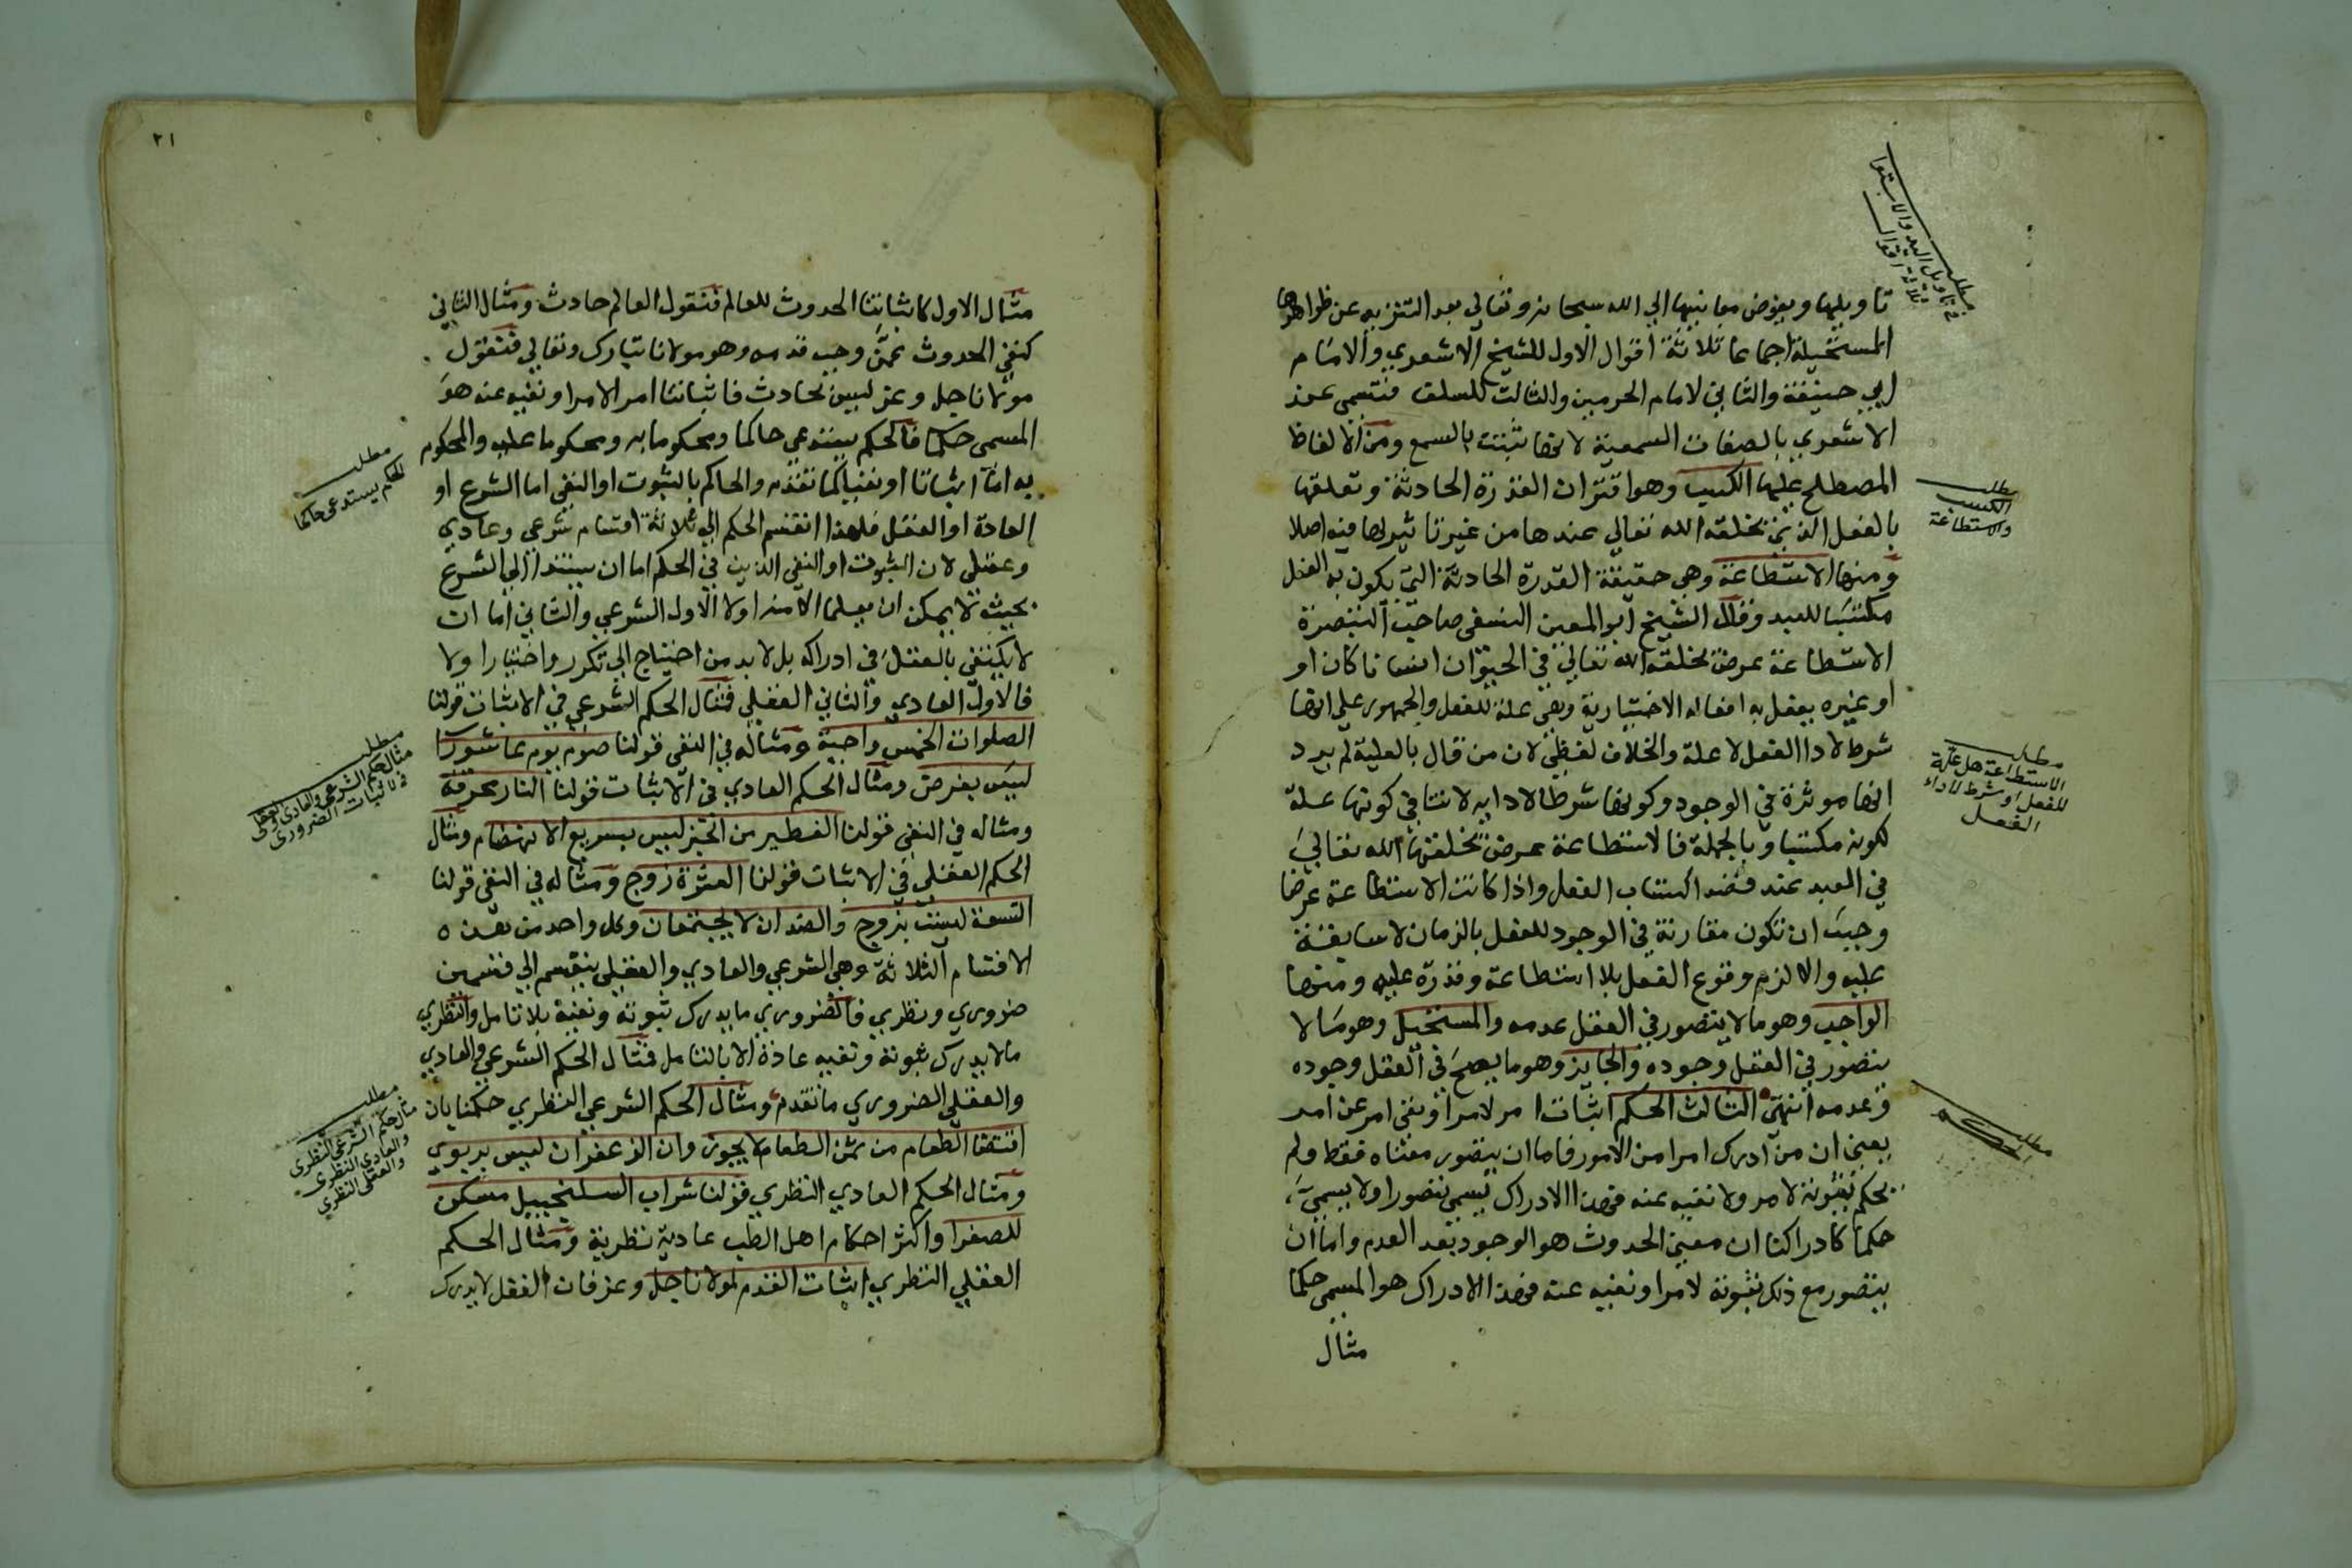 مطلب
في تاويل اليد والاستوا
ثلاثة اقوال
تاويلها ويفوض معانيها الي الله سبحانه وتعالي بعد التنزيه عن ظواهرها
المستحيلة اجماعا ثلاثة اقوال الاول للشيخ الاشعري والامام
ابي حنيفة والثاني لامام الحرمين والثالث للسلف فتسمي عند
الاشعري بالصفات السمعية لانها تثبت بالسمع ومن الالفاظ
المصطلح عليها الكسب وهو اقتران القدرة الحادثة وتعلقها
بالفعل الذي يخلقه الله تعالي عندها من غير تاثير لها فيه اصلا
ومنها الاستطاعة وهي حقيقة القدرة الحادثة التي يكون به الفعل
مكتسبا للعبد وقال الشيخ ابو المعين النسفي صاحب التبصرة
الاستطاعة عرض يخلقه الله تعالي في الحيوان انسانا كان او
او غيره يفعل به افعاله الاختيارية وهي علة للفعل والجمهور علي انها
شرط لاداا الفعل لا علة والخلاف لفظي لان من قال بالعلية لم يرد
انها موثرة في الوجود وكونها شرطا لادايه لا تنافي كونها علة
لكونه مكتسبا وبالجملة فالاستطاعة عرض يخلقها الله تعالي
في العبد عند قصد اكتساب الفعل واذا كانت الاستطاعة عرضا
وجب ان تكون مقارنة في الوجود للفعل بالزمان لا سابقة
عليه والا لزم وقوع الفعل بلا استطاعة وقدرة عليه ومنها
الواجب وهو ما لا يتصور في العقل عدمه والمستحيل وهو ما لا
يتصور في العقل وجوده والجايز وهو ما يصح في العقل وجوده
وعدمه انتهي الثالث الحكم اثبات امر لامر او نفي امر عن امر
بمعني ان من ادرك امرا من الامور فاما ان يتصور معناه فقط ولم
يحكم بثبوته لامر ولا نفيه عنه فهذا الادراك يسمي تصورا ولا يسمي
حكما كادراكنا ان معني الحدوث هو الوجود بعد العدم واما ان
يتصور مع ذلك ثبوته لامر او نفيه عنه فهذا الادراك هو المسمي حكما
مثال
مطلب
الكسب
والاستطاعة
مطلب
الاستطاعة هل علة
للفعل او شرط لاداء
الفعل
مطلب
الحكم
٢١
مثال الاول كاثباتنا الحدوث للعالم فنقول العالم حادث ومثال الثاني
كنفي الحدوث عمن وجب قدمه وهو مولانا تبارك وتعالي فنقول
مولانا جل وعز ليس بحادث فاثباتنا امر الامر او نفيه عنه هو
المسمي حكما فالحكم يستدعي حاكما ومحكوما به ومحكوما عليه والمحكوم
به اما اثباتا او نفيا كما تقدم والحاكم بالثبوت او النفي اما الشرع او
العادة او العقل فلهذا انقسم الحكم الي ثلاثة اقسام شرعي وعادي
وعقلي لان الثبوت او النفي الذين في الحكم اما ان يستندا الي الشرع
بحيث لا يمكن ان يعلما الا منه اولا الاول الشرعي والثاني اما ان
لا يكتفي بالعقل في ادراكه بل لا بد من احتياج الي تكرر واختبار اولا
فالاول العادي والثاني العقلي فمثال الحكم الشرعي في الاثبات قولنا
الصلوات الخمس واجبة ومثاله في النفي قولنا صوم يوم عاشورا
ليس بفرض ومثال الحكم العادي في الاثبات قولنا النار محرقة
ومثاله في النفي قولنا الفطير من الخبز ليس بسريع الانهضام ومثال
الحكم العقلي في الاثبات قولنا العشرة زوج ومثاله في النفي قولنا
التسعة ليست بزوج والضدان لا يجتمعان وكل واحد من هذه
الاقسام الثلاثة وهي الشرعي والعادي والعقلي ينقسم الي قسمين
ضروري ونظري فالضروري ما يدرك ثبوته ونفيه بلا تامل والنظري
ما لا يدرك ثبوته ونفيه عادة الا بالتامل فمثال الحكم الشرعي والعادي
والعقلي الضروري ما تقدم ومثال الحكم الشرعي النظري حكمنا بان
اقتضا الطعام من ثمن الطعام لا يجوز وان الزعفران ليس بربوي
ومثال الحكم العادي النظري قولنا شراب السكنجبيل مسكن
للصفرا واكثر احكام اهل الطب عادية نظرية ومثال الحكم
العقلي النظري اثبات القدم لمولانا جل وعز فان العقل لا يدرك
مطلب
الحكم يستدعي حاكما
مطلب
مثال حكم الشرعي والعادي والعقلي
في الاثبات الضروري
مطلب
مثال حكم الشرعي النظري
والعادي النظري
والعقلي النظري